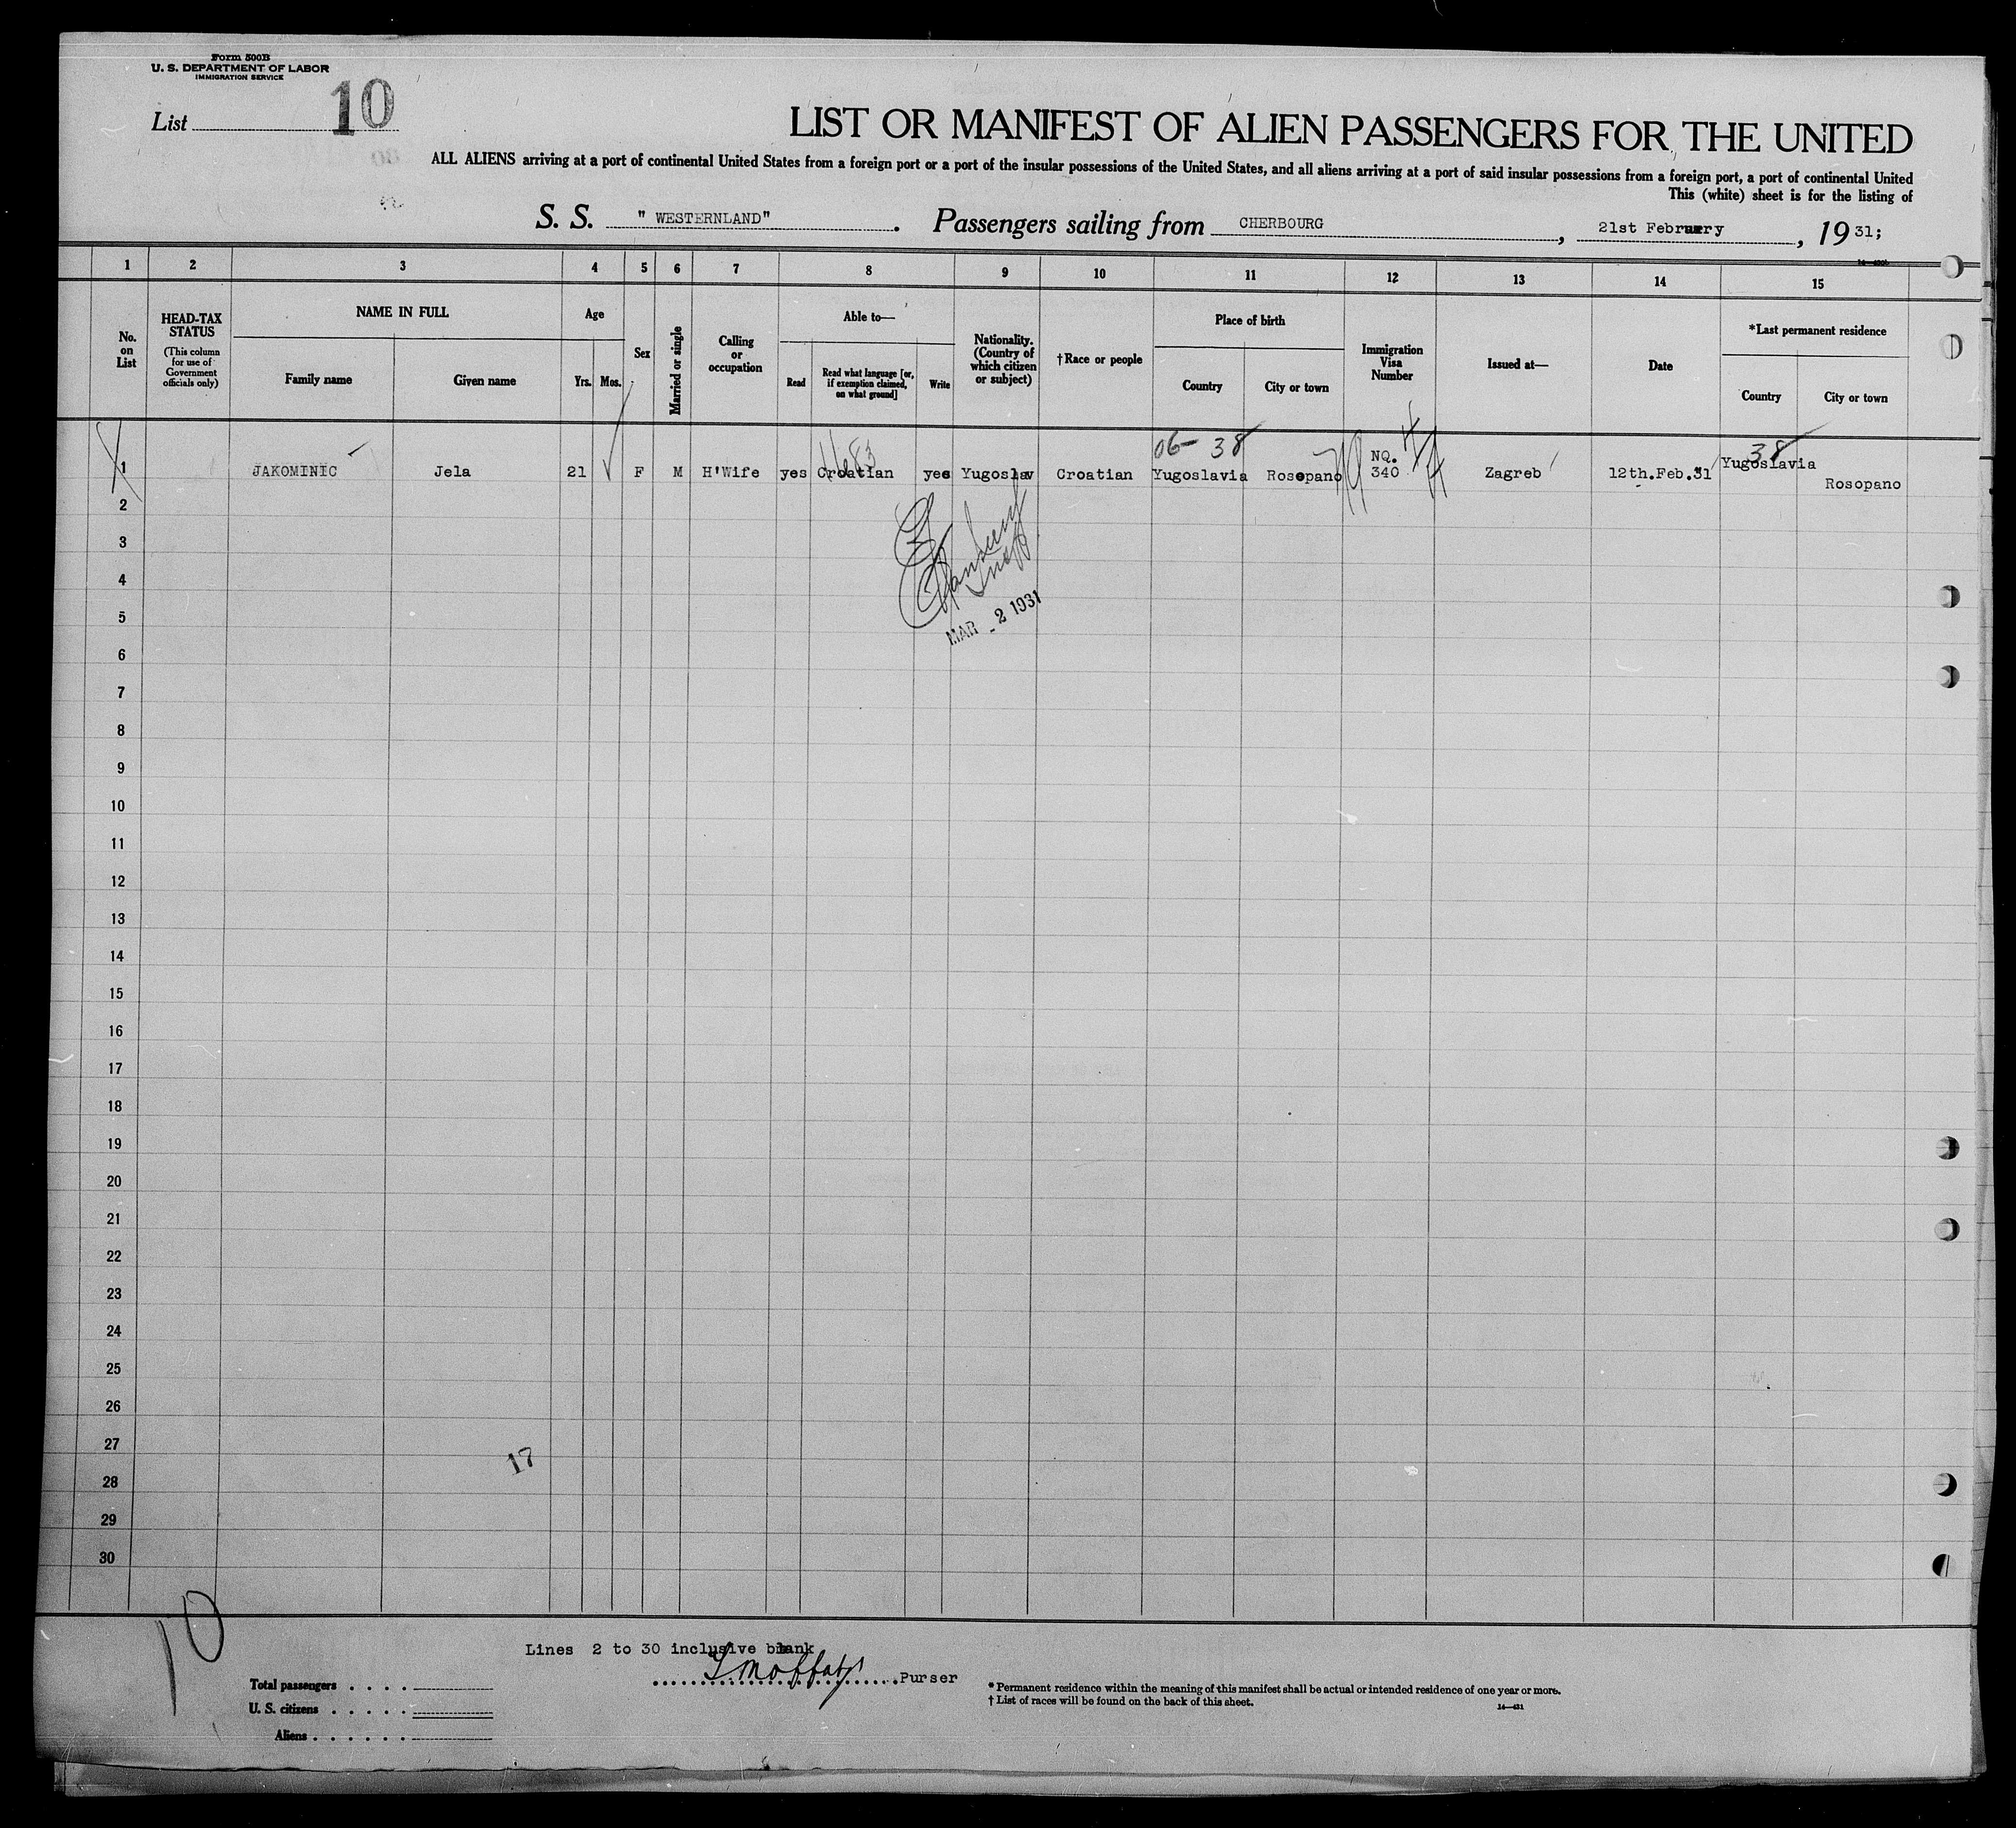 Form 500B
U. S. DEPARTMENT OF LABOR
IMMIGRATION SERVICE
List 10
LIST OR MANIFEST OF ALIEN PASSENGERS FOR THE UNITED
ALL ALIENS arriving at a port of continental United States from a foreign port or a port of the insular possessions of the United States, and all aliens arriving at a port of said insular possessions from a foreign port, a port of continental United
This (white) sheet is for the listing of
S. S. " WESTERNLAND". Passengers sailing from CHERBOURG, 21st February, 1931;
1 2 3 4 5 6 7 8 9 10 11 12 13 14 15
No. on List
HEAD-TAX STATUS
(This column for use of Government officials only)
NAME IN FULL
Family name Given name
Age
Yrs. Mos.
Sex
Married or single
Calling or occupation
Able to—
Read
Read what language [or, if exemption claimed, on what ground]
Write
Nationality. (Country of which citizen or subject)
†Race or people
Place of birth
Country City or town
Immigration Visa Number
Issued at—
Date
*Last permanent residence
Country City or town
06- 38 38
1 JAKOMINIC Jela 21 F M H'Wife yes Croatian yes Yugoslav Croatian Yugoslavia Rosopano NQ. 340 Zagreb 12th.Feb.31 Yugoslavia Rosopano
2
3
4
5
MAR - 2 1931
6
7
8
9
10
11
12
13
14
15
16
17
18
19
20
21
22
23
24
25
26
27
17
28
29
30
10
Lines 2 to 30 inclusive blank
Purser
Total passengers
U. S. citizens
Aliens
* Permanent residence within the meaning of this manifest shall be actual or intended residence of one year or more.
† List of races will be found on the back of this sheet.
14—431